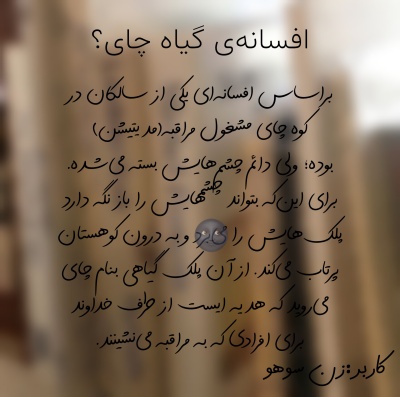 افسانه‌ی گیاه چای؟
براساس افسانه‌ای یکی از سالکان در
کوه چای مشغول مراقبه(مدیتیشن)
بوده؛ ولی دائم چشم‌هایش بسته می‌شده.
برای این‌که بتواند چشم‌هایش را باز نگه دارد
پلک‌هایش را می‌برد و به درون کوهستان
پرتاب می‌کند. از آن پلک گیاهی بنام چای
می‌روید که هدیه ایست از طرف خداوند
برای افرادی که به مراقبه می‌نشینند.
کاربر:زن سوهو